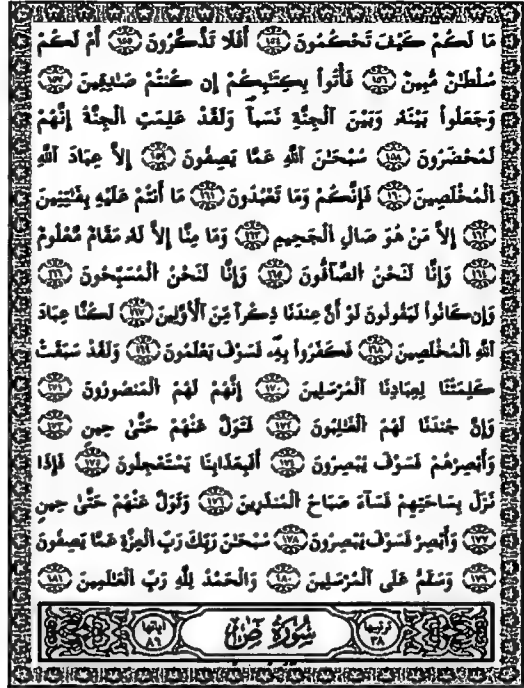 مَا لَكُمْ كَيْفَ تَحْكُمُونَ ١٥٤ أَفَلَا تَذَكَّرُونَ ١٥٥ أَمْ لَكُمْ
سُلْطَٰنٌ مُّبِينٌ ١٥٦ فَأْتُوا۟ بِكِتَٰبِكُمْ إِن كُنتُمْ صَٰدِقِينَ ١٥٧
وَجَعَلُوا۟ بَيْنَهُۥ وَبَيْنَ الْجِنَّةِ نَسَباً وَلَقَدْ عَلِمَتِ الْجِنَّةُ إِنَّهُمْ
لَمُحْضَرُونَ ١٥٨ سُبْحَٰنَ اللَّهِ عَمَّا يَصِفُونَ ١٥٩ إِلَّا عِبَادَ اللَّهِ
الْمُخْلَصِينَ ١٦٠ فَإِنَّكُمْ وَمَا تَعْبُدُونَ ١٦١ مَا أَنتُمْ عَلَيْهِ بِفَٰتِنِينَ
١٦٢ إِلَّا مَنْ هُوَ صَالِ الْجَحِيمِ ١٦٣ وَمَا مِنَّا إِلَّا لَهُۥ مَقَامٌ مَّعْلُومٌ
١٦٤ وَإِنَّا لَنَحْنُ الصَّآفُّونَ ١٦٥ وَإِنَّا لَنَحْنُ الْمُسَبِّحُونَ ١٦٦
وَإِن كَانُوا۟ لَيَقُولُونَ لَوْ أَنَّ عِندَنَا ذِكْراً مِّنَ الْأَوَّلِينَ ١٦٧ لَكُنَّا عِبَادَ
اللَّهِ الْمُخْلَصِينَ ١٦٨ فَكَفَرُوا۟ بِهِۦ فَسَوْفَ يَعْلَمُونَ ١٦٩ وَلَقَدْ سَبَقَتْ
كَلِمَتُنَا لِعِبَادِنَا الْمُرْسَلِينَ ١٧٠ إِنَّهُمْ لَهُمُ الْمَنصُورُونَ ١٧١
وَإِنَّ جُندَنَا لَهُمُ الْغَٰلِبُونَ ١٧٢ فَتَوَلَّ عَنْهُمْ حَتَّىٰ حِينٍ ١٧٣
وَأَبْصِرْهُمْ فَسَوْفَ يُبْصِرُونَ ١٧٤ أَفَبِعَذَابِنَا يَسْتَعْجِلُونَ ١٧٥ فَإِذَا
نَزَلَ بِسَاحَتِهِمْ فَسَآءَ صَبَاحُ الْمُنذَرِينَ ١٧٦ وَتَوَلَّ عَنْهُمْ حَتَّىٰ حِينٍ
١٧٧ وَأَبْصِرْ فَسَوْفَ يُبْصِرُونَ ١٧٨ سُبْحَٰنَ رَبِّكَ رَبِّ الْعِزَّةِ عَمَّا يَصِفُونَ
١٧٩ وَسَلَٰمٌ عَلَى الْمُرْسَلِينَ ١٨٠ وَالْحَمْدُ لِلَّهِ رَبِّ الْعَٰلَمِينَ ١٨١
ترتيبها ٣٨ سُورَةُ صٓ آياتها ٨٦